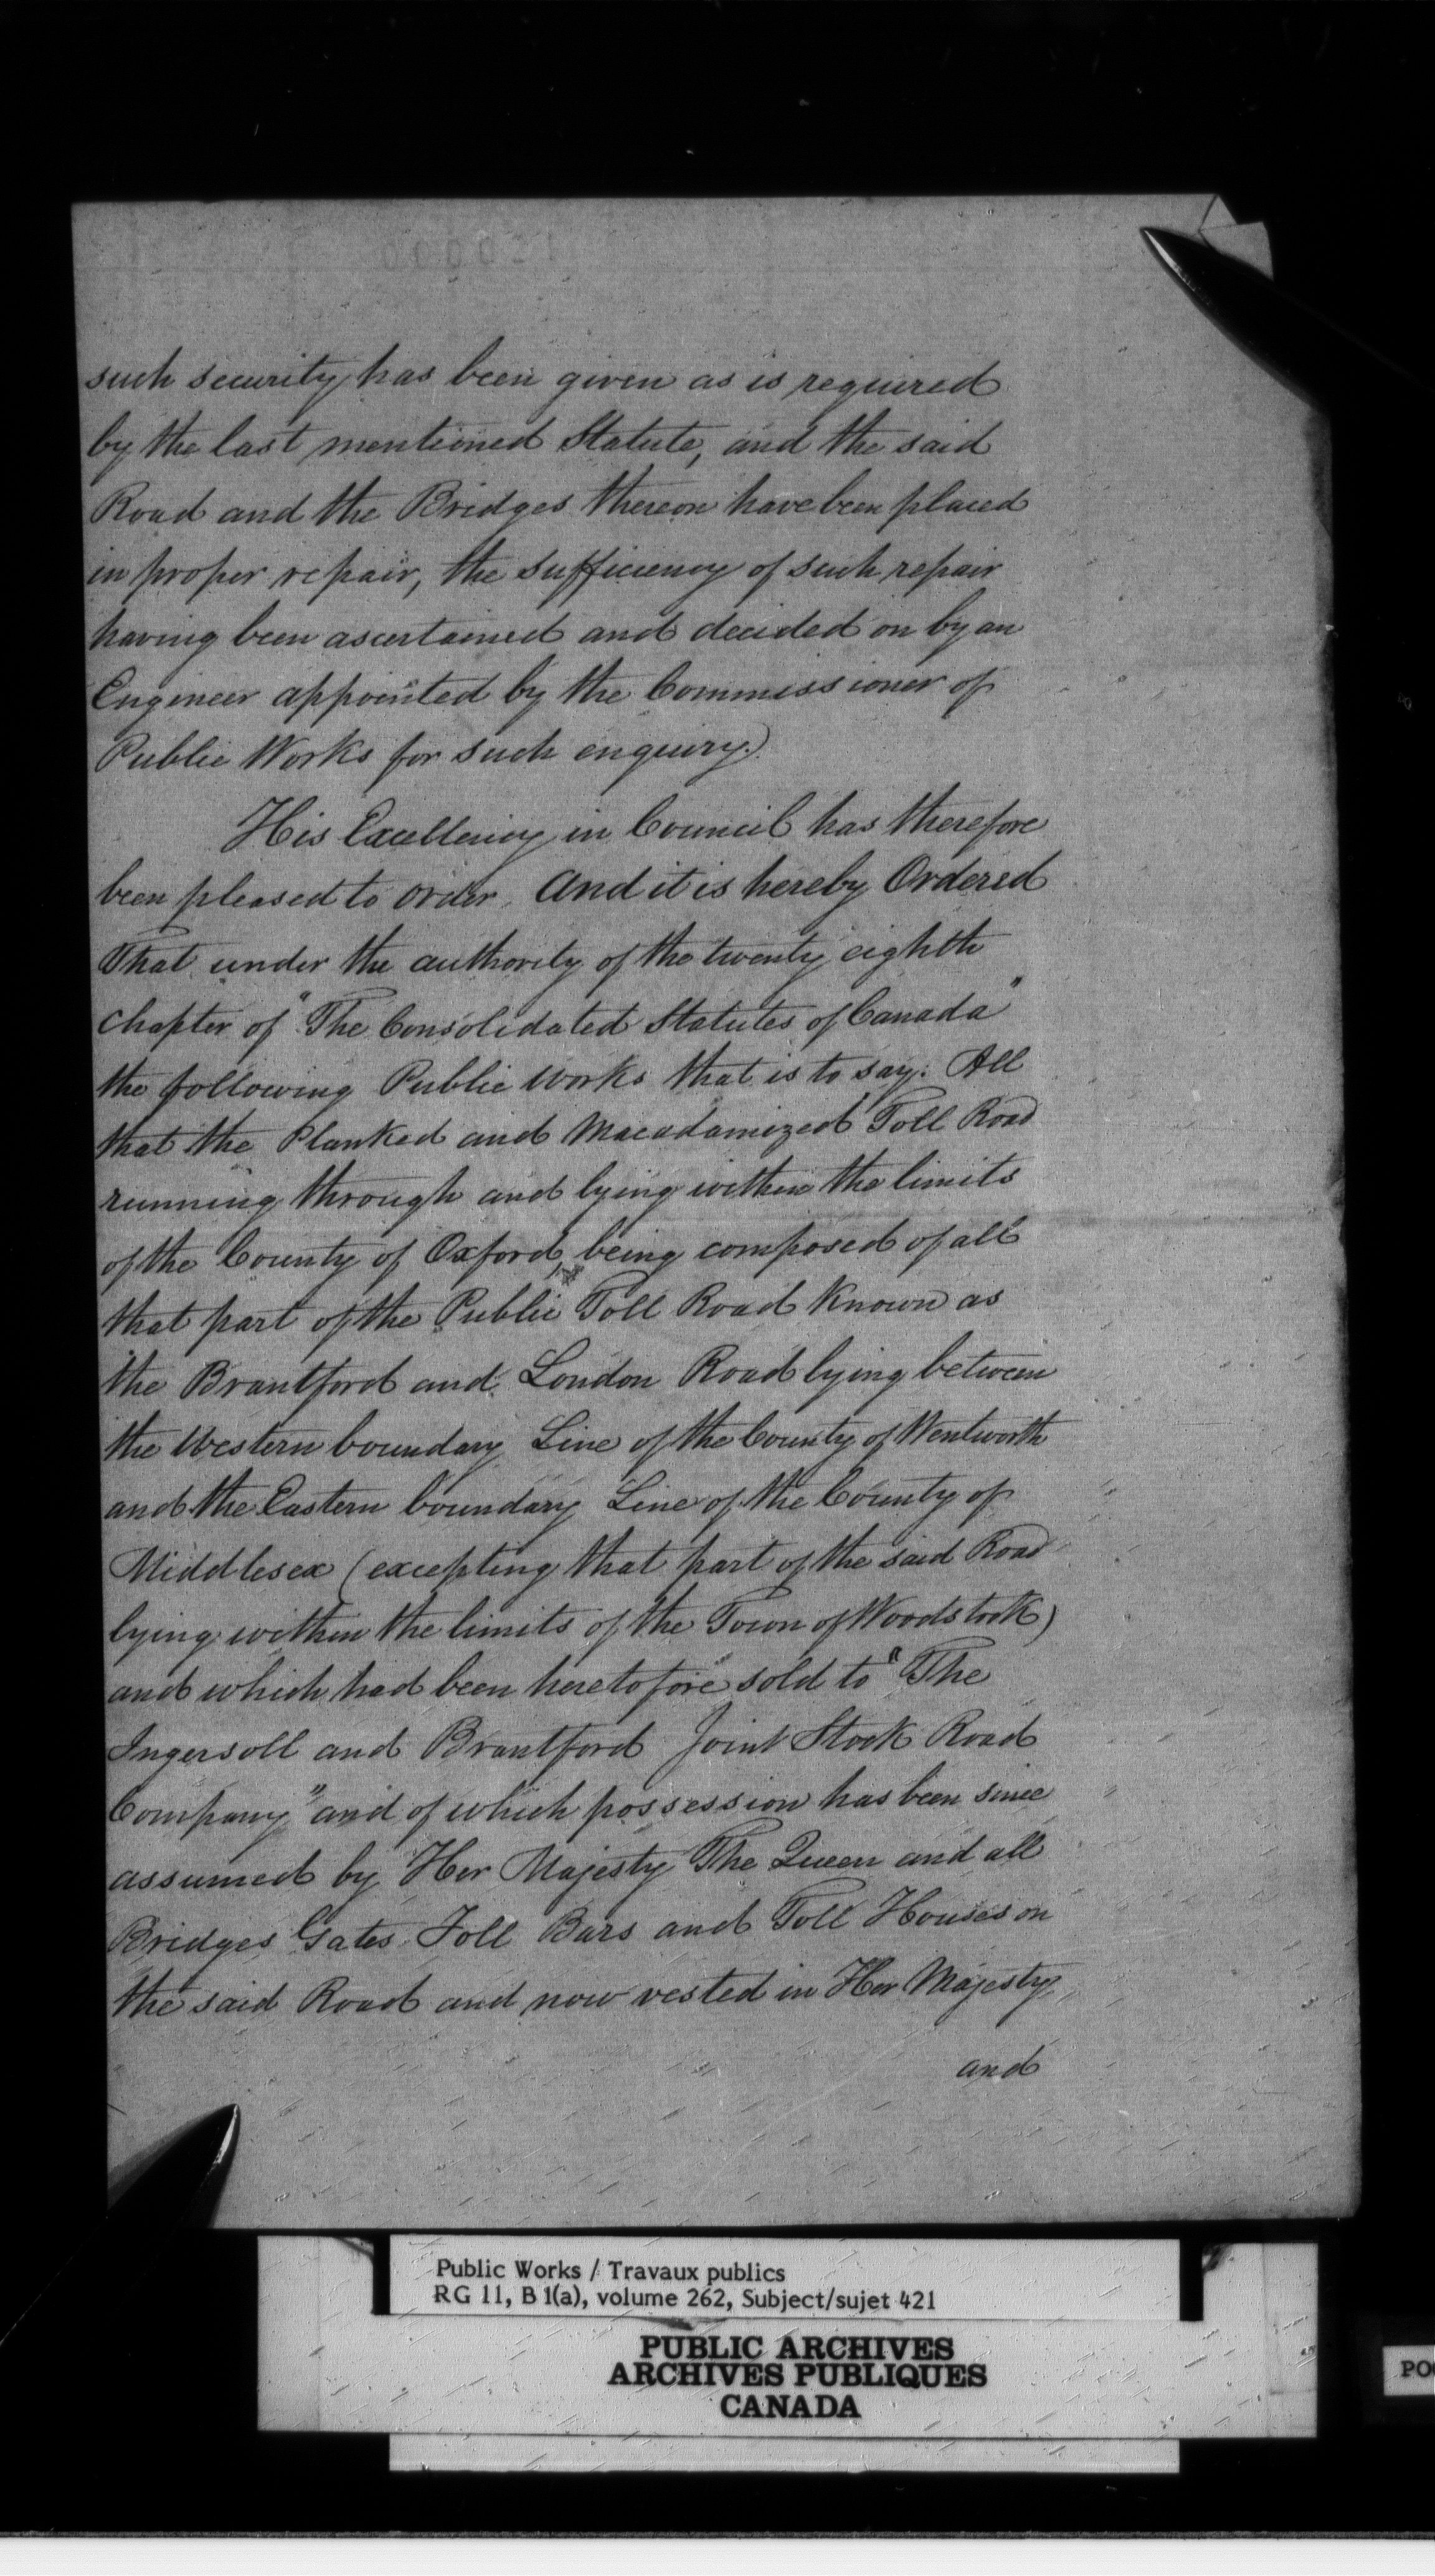 such security has been given as is required
by the last mentioned Statute, and the said
Road and the Bridges thereon have been placed
in proper repair, the sufficiency of such repair
having been ascertained and decided on by an
Engineer appointed by the Commissioner of
Public Works for such enquiry.)
His Excellency in Council has therefore
been pleased to order. And it is hereby Ordered
That under the authority of the twenty eighth
chapter of "The Consolidated Statutes of Canada"
the following Public Works that is to say: All
that the Planked and Macadamized Toll Road
running through and lying within the limits
of the County of Oxford, being composed of all
that part of the Public Toll Road Known as
the Brantford and London Road lying between
the Western boundary Line of the County of Wentworth
and the Eastern boundary Line of the County of
Middlesex (excepting that part of the said Road
lying within the limits of the Town of Woodstock)
and which had been heretofore sold to "The
Ingersoll and Brantford Joint Stock Road
Company" and of which possession has been since
assumed by Her Majesty The Queen and all
Bridges Gates Toll Bars and Toll Houses on
the said Road and now vested in Her Majesty
and
Public Works / Travaux publics
RG 11, B 1(a), volume 262, Subject/sujet 421
PUBLIC ARCHIVES
ARCHIVES PUBLIQUES
CANADA